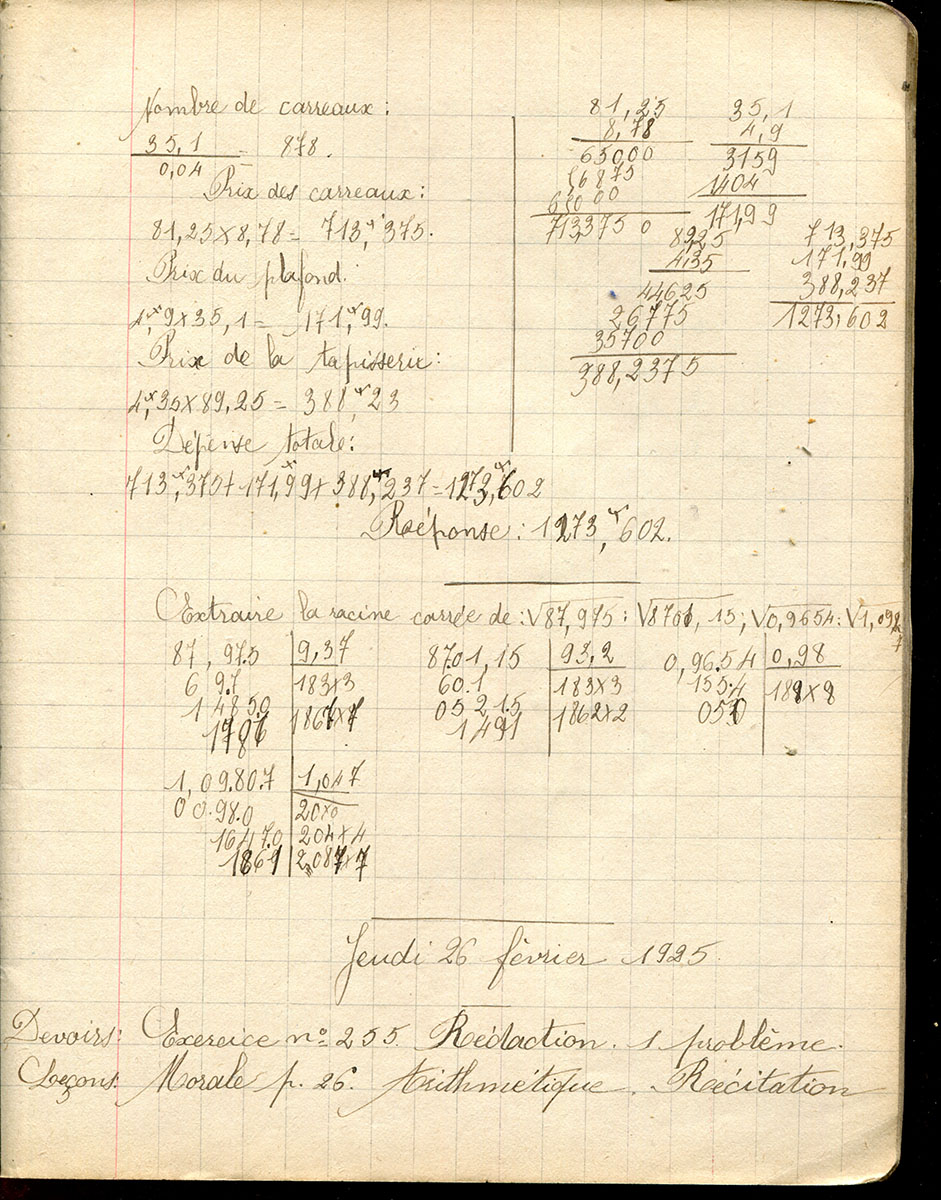 Nombre de carreaux :
35,1 = 878.
0,04
Prix des carreaux :
81,25 x 8,78 = 713f,375.
Prix du plafond.
4f,9 x 35,1 = 171f,99.
Prix de la tapisserie :
4f,35 x 89,25 = 388f,23
Dépense totale :
713f,375 + 171f,99 + 388f,237 = 1273f,602
Réponse : 1273f,602.
81,25
8,78
65000
56875
65000
713,3750
35,1
4,9
3159
1404
171,99
8925
4,35
44625
26775
35700
388,2375
713,375
171,99
388,237
1273,602
Extraire la racine carrée de : √87,975 : √8701,15 ; √0,9654 : √1,0987
87,97.5 9,37
6 9.7 183x3
1 485.0 1867x7
1781
8701,15 93,2
60.1 183x3
05 21.5 1862x2
1 491
0,96.54 0,98
155.4 188x8
050
1,09.80.7 1,047
00.98.0 20x0
1647.0 204x4
1861 2087x7
Jeudi 26 février 1925
Devoirs : Exercice n° 255. Rédaction. 1 problème.
Leçons : Morale p. 26. Arithmétique. Récitation